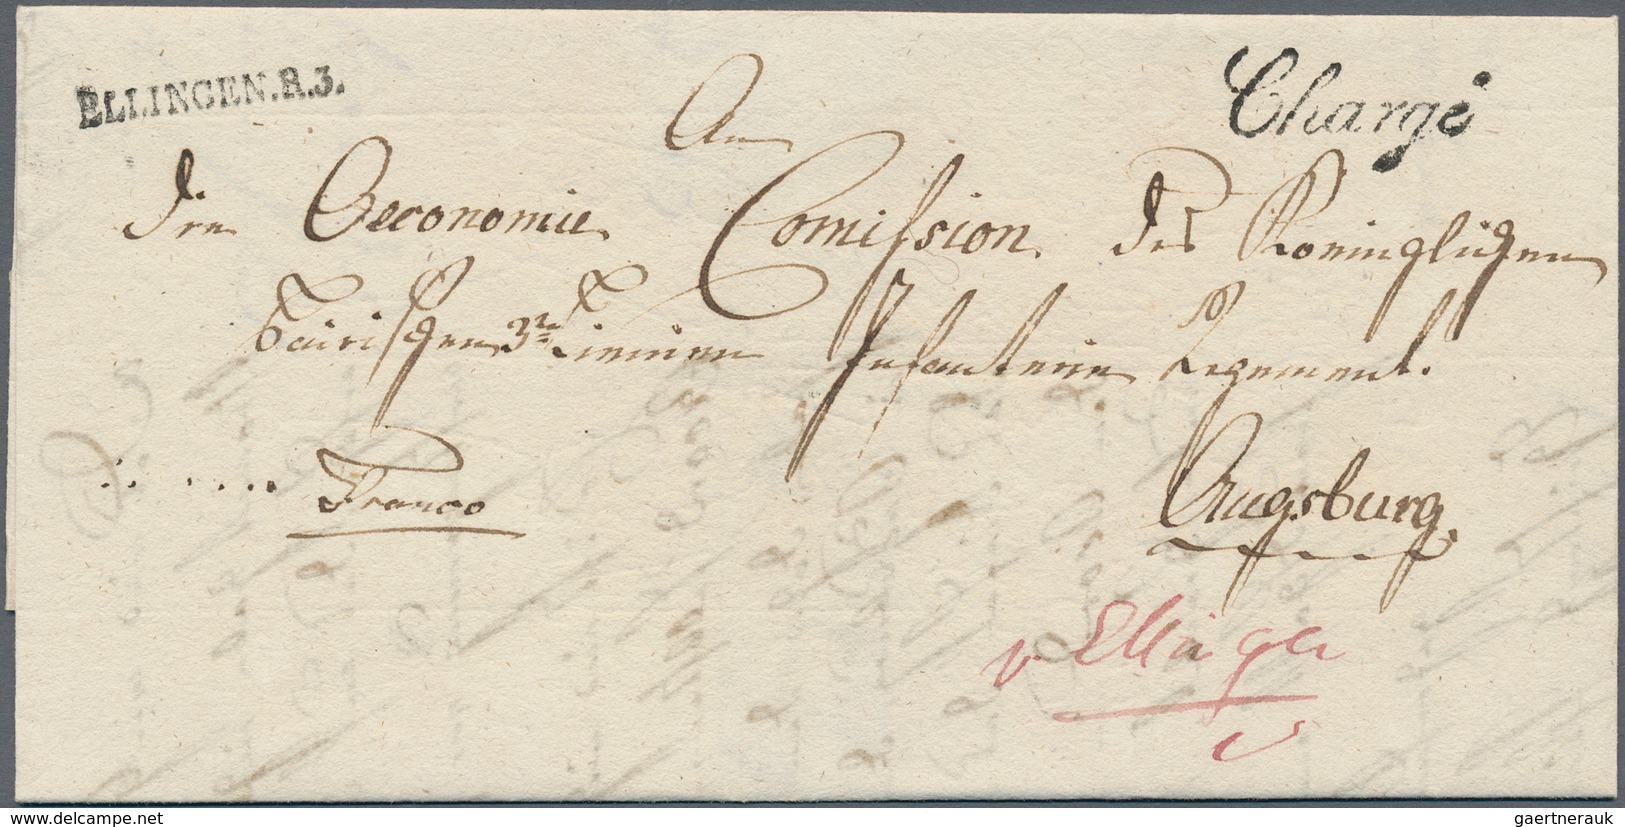 ELLINGEN.R.3.
Chargé
An
Die Oeconomie Comission des Königlichen
Bairischen 3n Linien Infanterie Regement.
Franco
Augsburg.
v Ellingen
delcampe.net
gaertnerauk